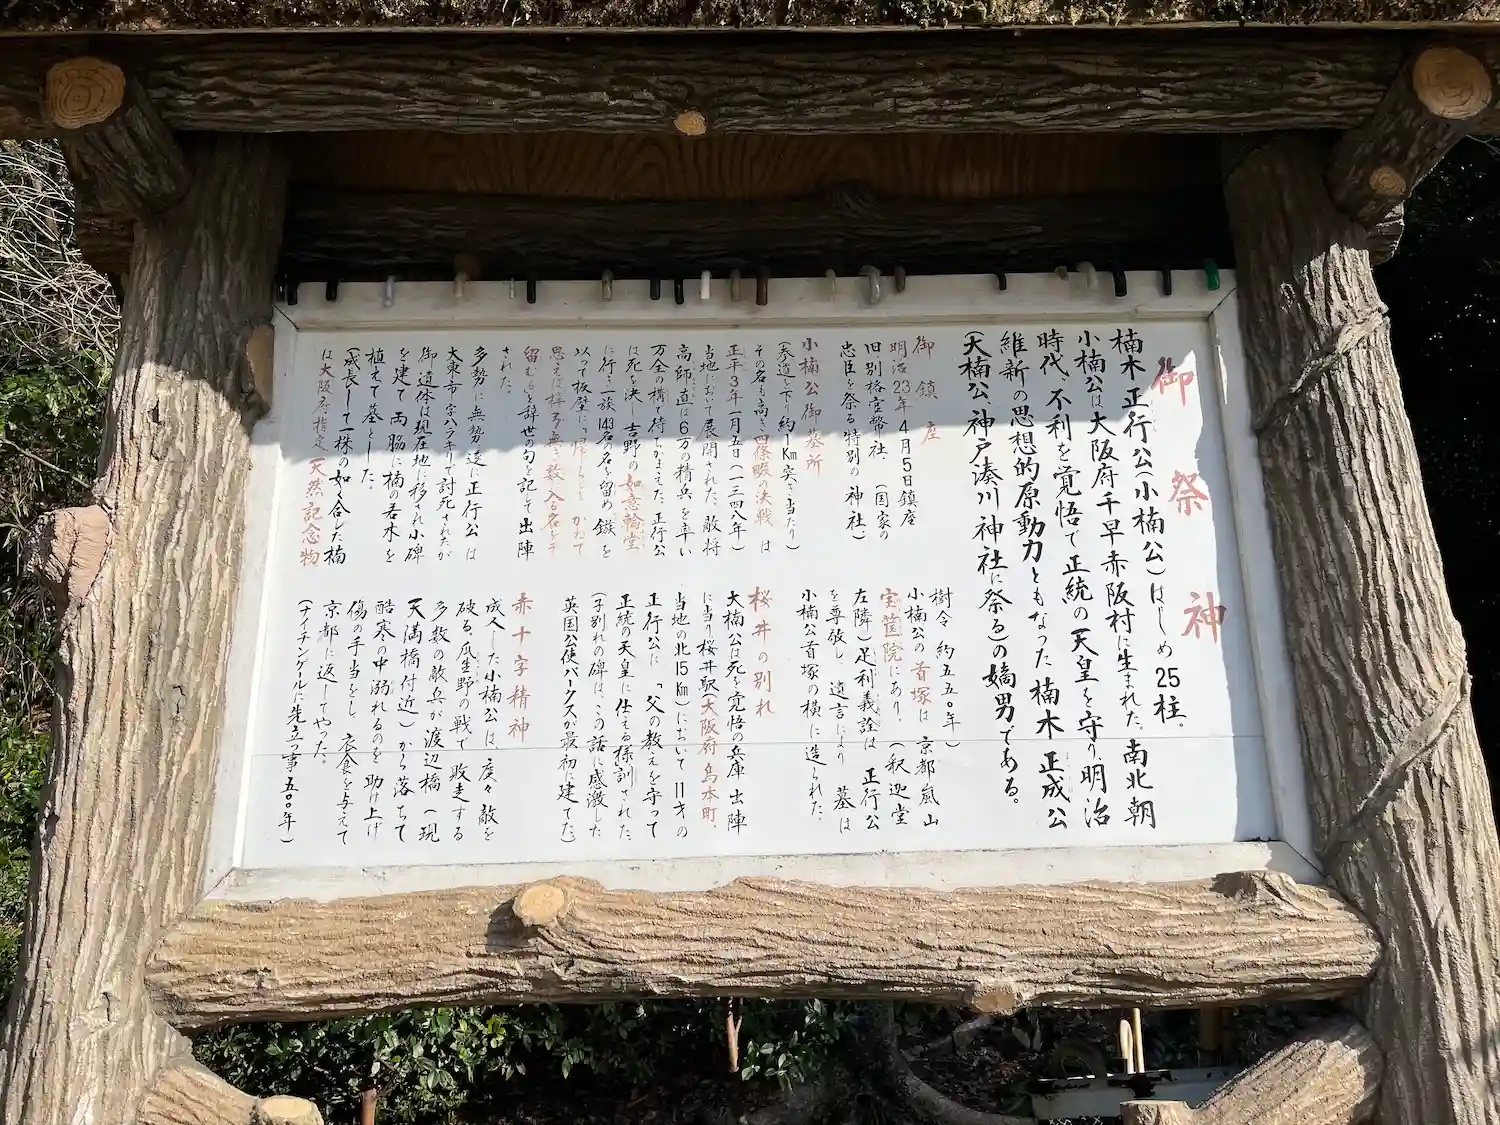 御祭神
楠木正行公(小楠公)はじめ25柱。
小楠公は大阪府千早赤阪村に生まれた。南北朝
時代、不利を覚悟で正統の天皇を守り、明治
維新の思想的原動力ともなった楠木正成公
(大楠公、神戸湊川神社に祭る)の嫡男である。
御鎮座
明治23年4月5日鎮座
旧別格官幣社(国家の
忠臣を祭る特別の神社)
小楠公御墓所
(参道を下り約1Km突き当たり)
その名も高き四條畷の決戦は
正平3年一月五日(一三四八年)
当地において展開された。敵将
高師直は6万の精兵を率い
万全の構で待ちかまえた。正行公
は死を決し吉野の如意輪堂
に行き一族143名の名を留め、鏃を
以って板壁に「帰らじと かねて
思えば梓弓 無き数に入る名をぞ
留むる」と辞世の句を記して出陣
された。
多勢に無勢、遂に正行公は
大東市字ハラキリで討死されたが
御遺体は現在地に移され小碑
を建て両脇に楠の若木を
植えて墓とした。
(成長して一株の如く合した楠
は大阪府指定「天然記念物」
樹令約五五〇年)
小楠公の首塚は京都嵐山
宝筐院にあり、(釈迦堂
左隣)足利義詮は正行公
を尊敬し、遺言により墓は
小楠公首塚の横に造られた。
桜井の別れ
大楠公は死を覚悟の兵庫出陣
に当り桜井駅(大阪府島本町、
当地の北15Km)において11才の
正行公に「父の教えを守って
正統の天皇に仕える様訓された。
(子別れの碑は、この話に感激した
英国公使パークスが最初に建てた)
赤十字精神
成人した小楠公は、度々敵を
破る、瓜生野の戦で敗走する
多数の敵兵が渡辺橋(現
天満橋付近)から落ちて
酷寒の中溺れるのを助け上げ
傷の手当をし、衣食を与えて
京都に返してやった。
(ナイチンゲールに先立つ事五〇〇年)